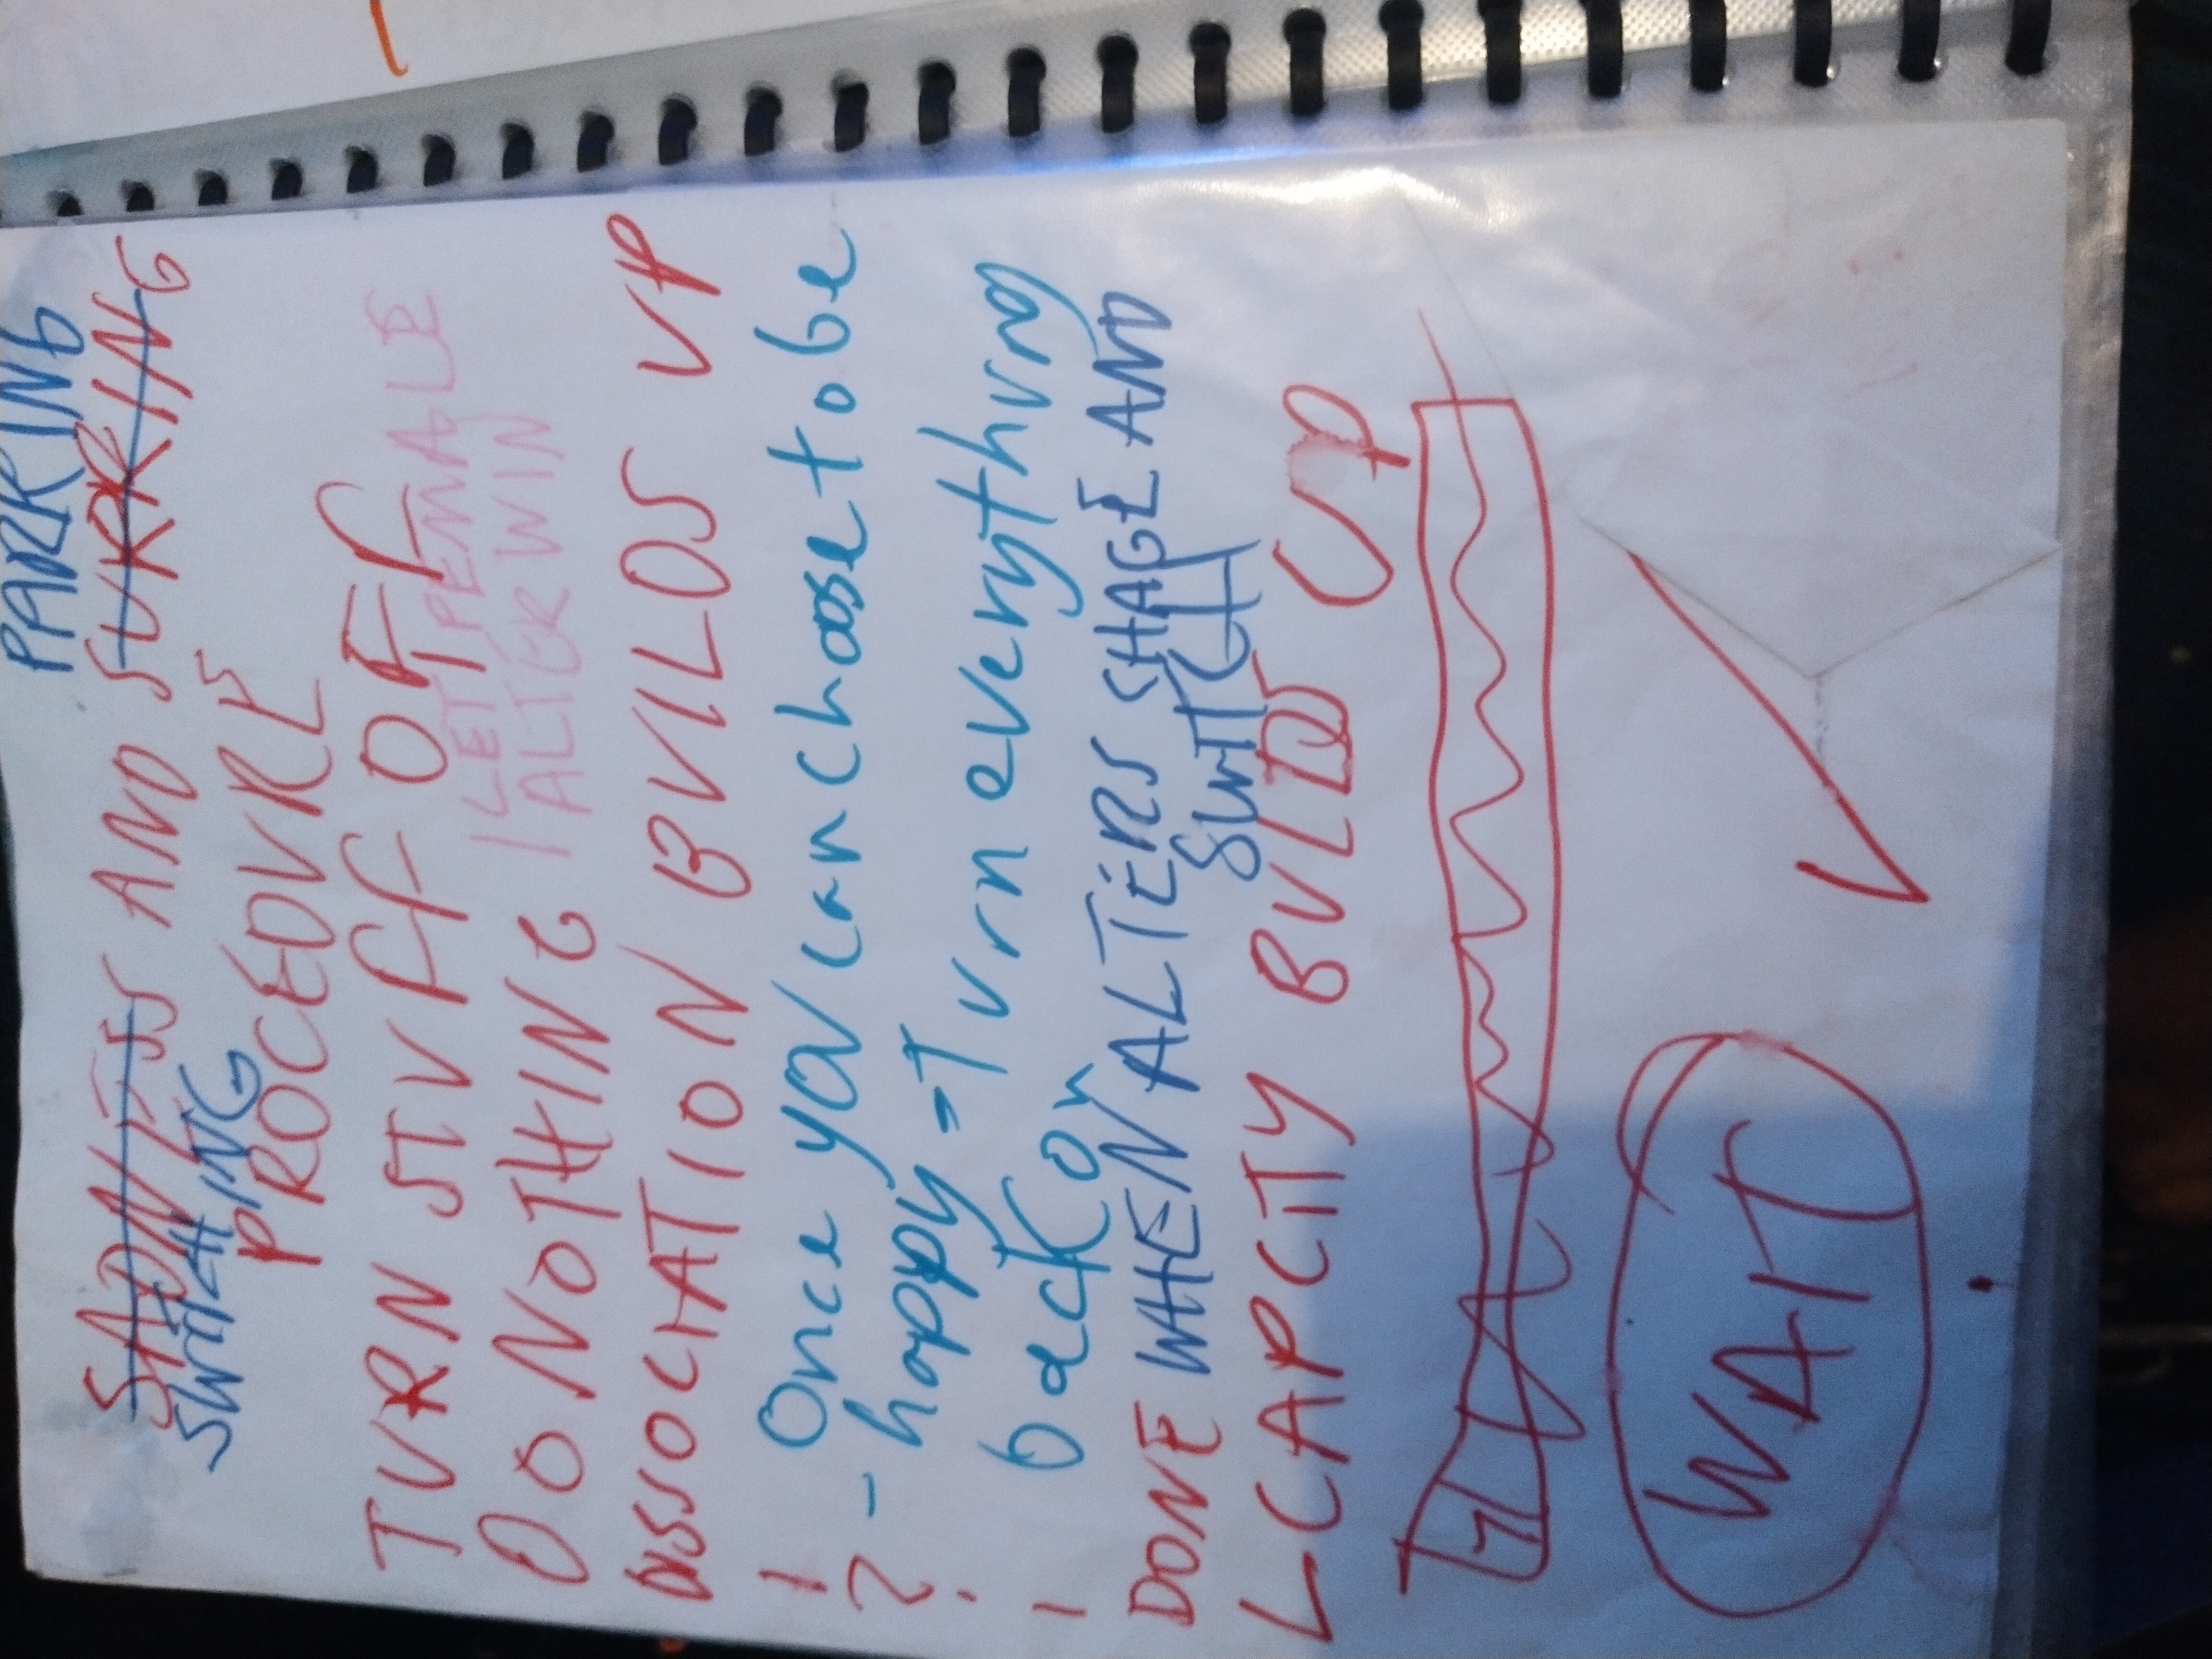 PARKING
SADNESS AND SURRING
SWITCHING
PROCEDURE
TURN STUFF OFF
LET FEMALE
DO NOTHING
ALTER WIN
DISSOCIATION BUILDS UP
1 Once you can choose to be
2 - happy - Turn everything
back on
DONE WHEN ALTERS SHAGE AND
SWITCH
CAPCITY BUILDS UP
WAIT